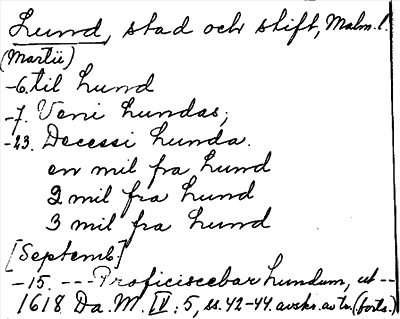 Lund, stad och stift, Malm. l.
(Martii)
-6. til Lund
-7. Veni Lundas;
-23. Decessi Lunda.
en mil fra Lund
2 mil fra Lund
3 mil fra Lund
[Septemb.]
-15. --- Proficiscebar Lundum, ut --
1618 Da. M. IV: 5, ss. 42-44. avskr. av tr. (forts.)